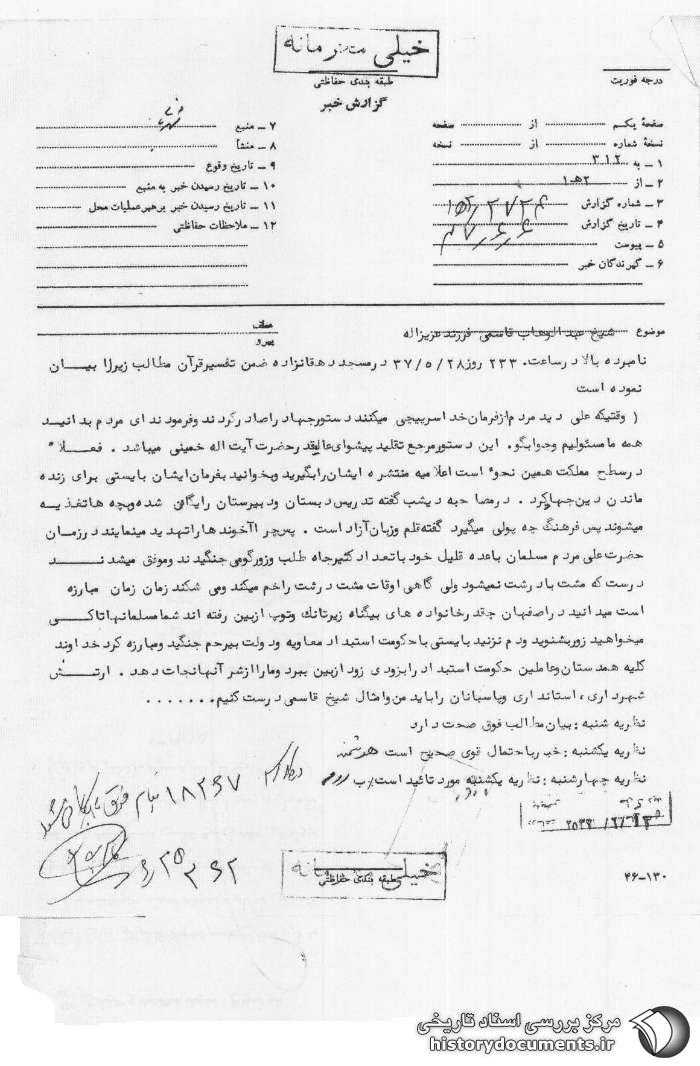 خیلی محرمانه
طبقه بندی حفاظتی
گزارش خبر
درجه فوریت
صفحهٔ یکم از صفحه
نسخهٔ شماره از نسخه
۱ ـ به ۳۱۲
۲ ـ از ۲هـ۱۰
۳ ـ شماره گزارش
۴ ـ تاریخ گزارش ۳۷٫۶٫۶
۵ ـ پیوست
۶ ـ گیرندگان خبر
۷ ـ منبع
۸ ـ منشأ
۹ ـ تاریخ وقوع
۱۰ ـ تاریخ رسیدن خبر به منبع
۱۱ ـ تاریخ رسیدن خبر برهبر عملیات محل
۱۲ ـ ملاحظات حفاظتی
موضوع شیخ عبدالوهاب قاسمی فرزند عزیزاله
عطف
پیرو
نامبرده بالا در ساعت ۲۳۳۰ روز ۳۷/۵/۲۸ در مسجد دهقانزاده ضمن تفسیر قرآن مطالب زیر را بیــان
نموده است
( وقتیکه علی دید مردم از فرمان خدا سرپیچی میکنند دستور جهاد را صادر کردند و فرمودند ای مردم بدانیــد
همه ما مسئولیم و جوابگو. این دستور مرجع تقلید پیشوای عالیقدر حضرت آیت اله خمینی میباشد . فعــلا ً
در سطح مملکت همین نحوه است اعلامیه منتشره ایشان را بگیرید و بخوانید بفرمان ایشان بایستی برای زنده
ماندن دین جهاد کرد . در مصاحبه دیشب گفته تدریس دبستان و دبیرستان رایگان شده و بچه ها تغذیــه
میشوند پس فرهنگ چه پولی میگیرد گفته قلم و زبان آزاد است . پس چرا آخوند ها را تهدید مینمایند در زمان
حضرت علی مردم مسلمان با عده قلیل خود با تعداد کثیر جاه طلب و زورگو می جنگیدند و موفق میشدنــد
درست که مشت با درشت نمیشود ولی گاهی اوقات مشت درشت را خم میکند و می شکند زمان زمان مبارزه
است میدانید در اصفهان چقدر خانواده های بیگناه زیر تانک و توپ از بین رفته اند شما مسلمانها تا کــی
میخواهید زور بشنوید و دم نزنید بایستی با حکومت استبداد معاویه و دولت بیرحم جنگید و مبارزه کرد خداوند
کلیه همدستان و عاملین حکومت استبداد را بزودی زود از بین ببرد و ما را از شر آنها نجات دهد . ارتــش
شهرداری، استانداری و پاسبانان را باید من و امثال شیخ قاسمی درست کنیم.......
نظریه شنبه : بیان مطالب فوق صحت دارد
نظریه یکشنبه : خبر باحتمال قوی صحیح است هوشمند
نظریه چهارشنبه : نظریه یکشنبه مورد تائید است
خیلی محرمانه
طبقه بندی حفاظتی
۴۶-۱۳۰
مرکز بررسی اسناد تاریخی
historydocuments.ir